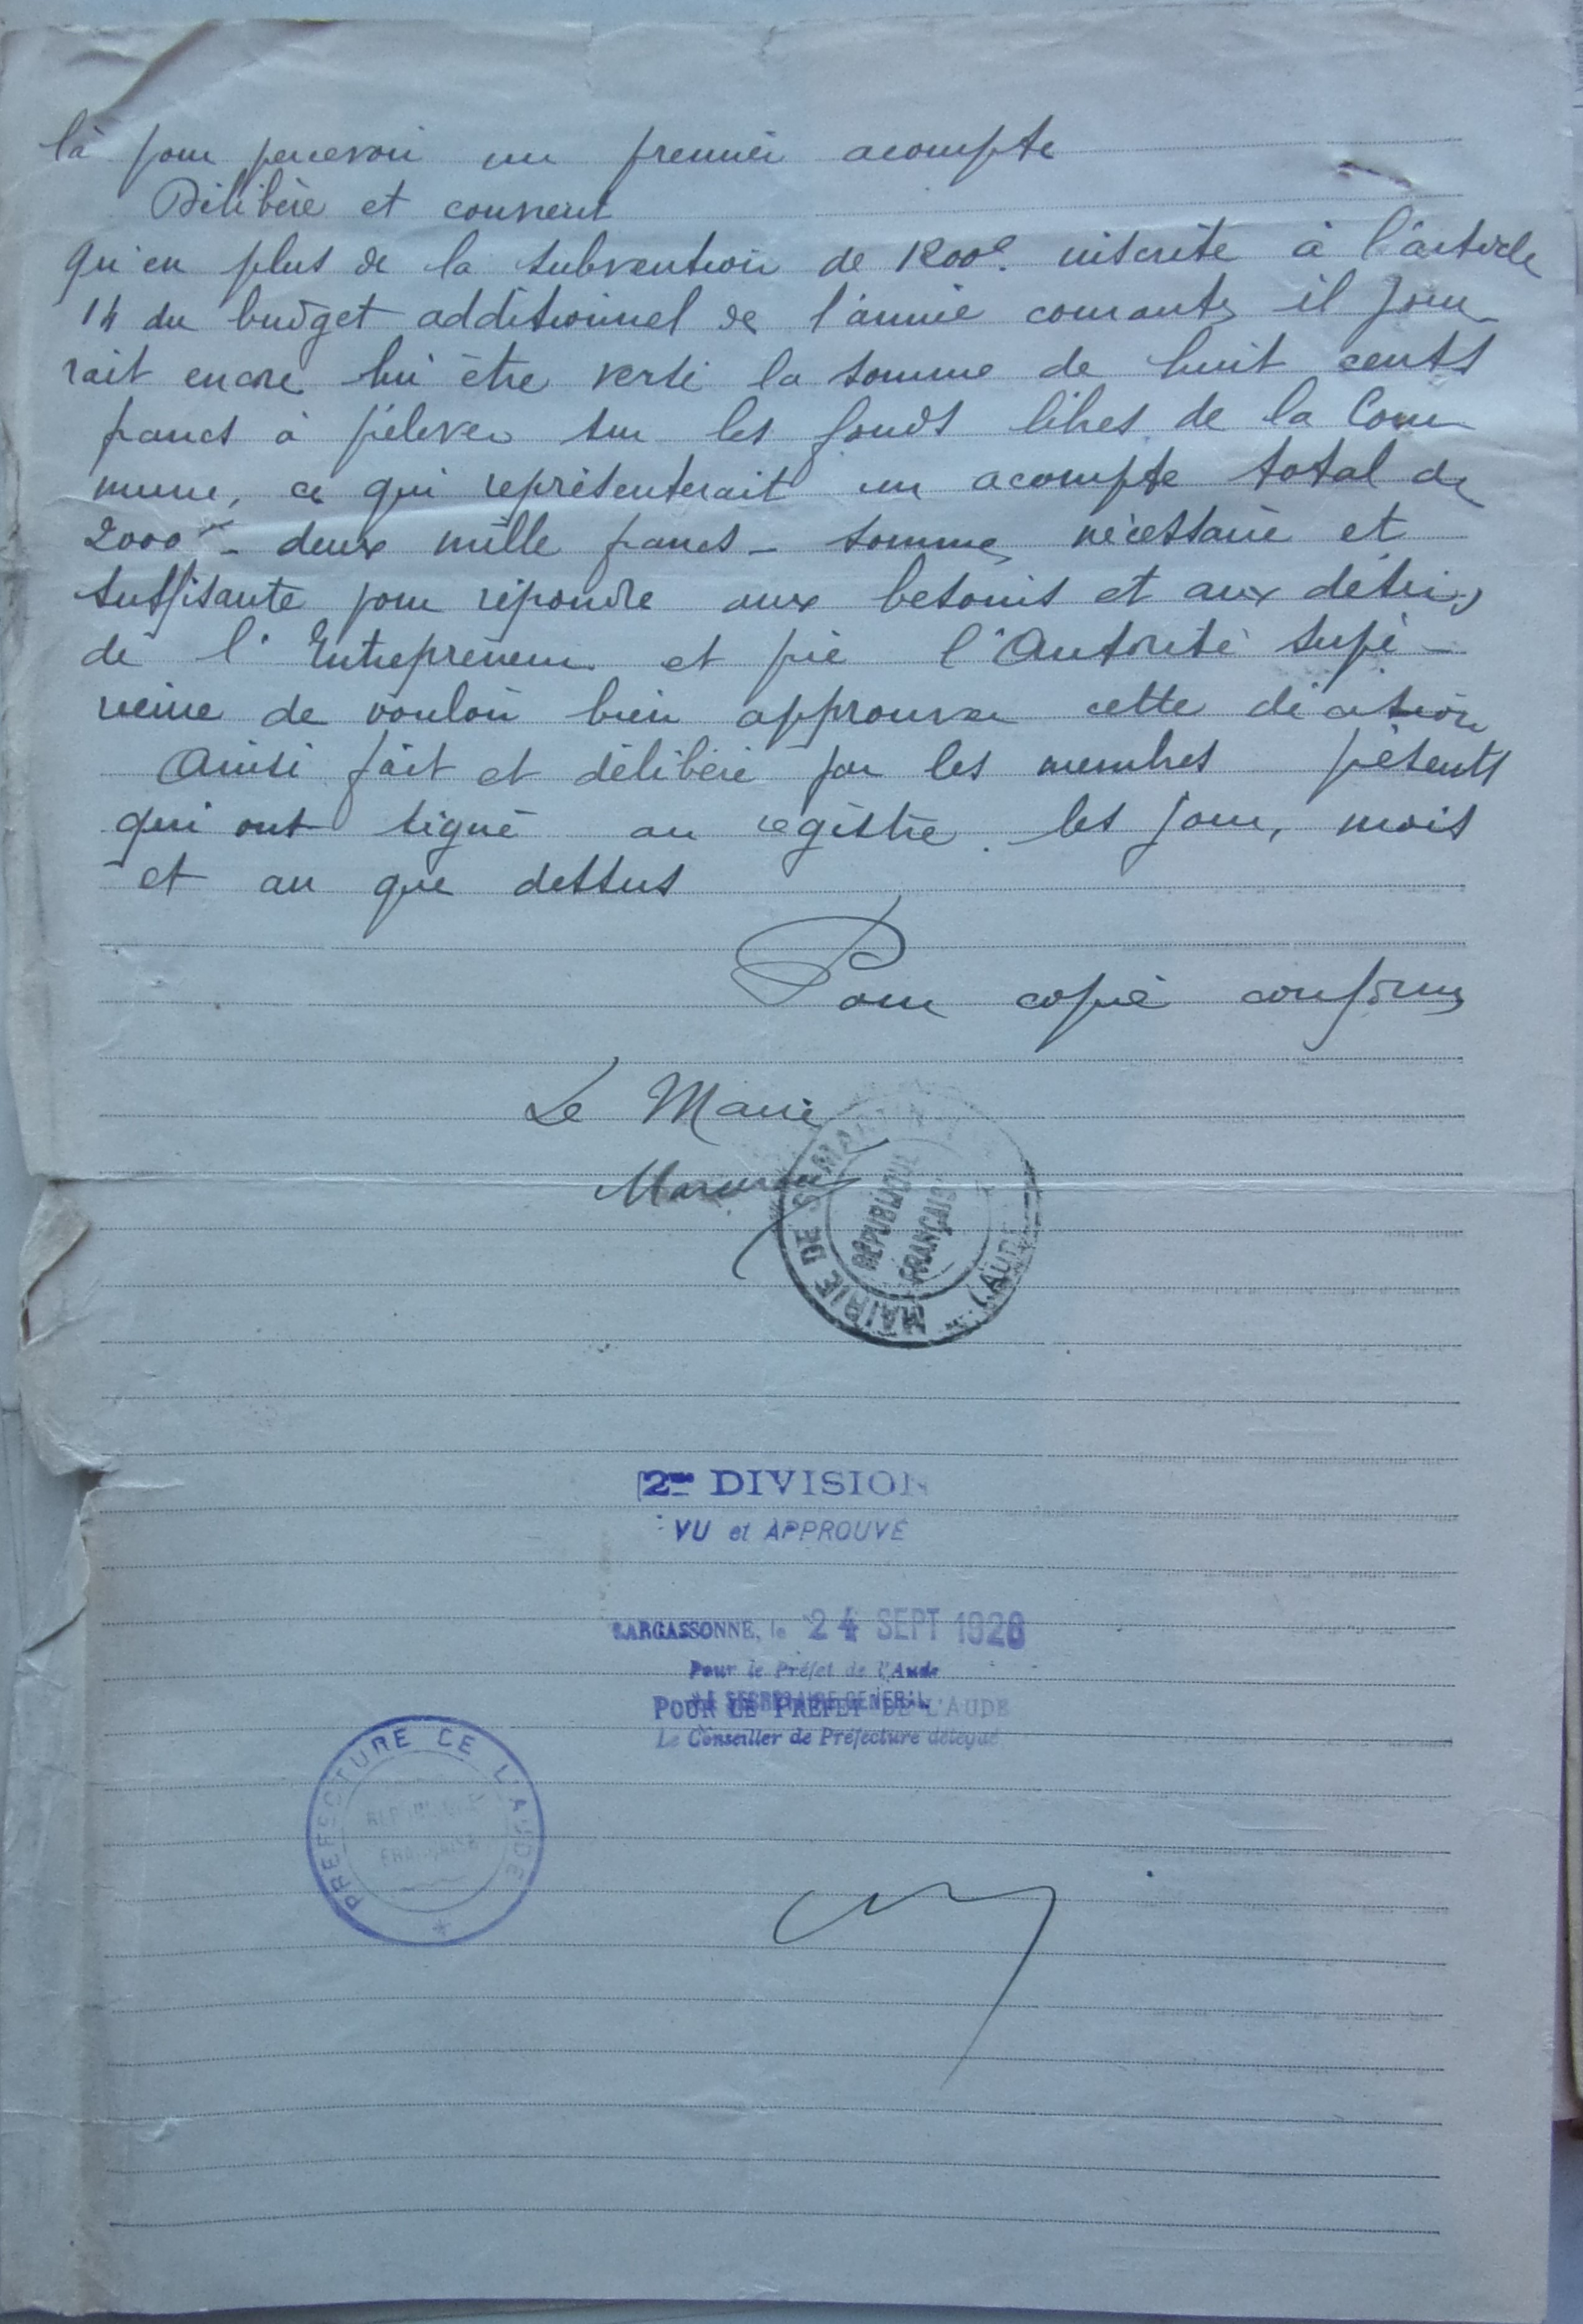 là pour percevoir un premier acompte
Délibère et convient
qu'en plus de la subvention de 1200f. inscrite à l'article
14 du budget additionnel de l'année courante il pour-
rait encore lui être versé la somme de huit cents
francs à prélever sur les fonds libres de la Com
mune, ce qui représenterait un acompte total de
2000f - deux mille francs - somme nécessaire et
suffisante pour répondre aux besoins et aux désirs
de l'Entrepreneur et prie l'Autorité supé-
rieure de vouloir bien approuver cette décision
Ainsi fait et délibéré par les membres présents
qui ont signé au registre les jour, mois
et an que dessus
Pour copie conforme
Le Maire
MAIRIE DE
RÉPUBLIQUE
FRANÇAIS
(AUDE
2me DIVISION
VU et APPROUVÉ
CARCASSONNE, le 24 SEPT 1928
Pour le Préfet de l'Aude
LE SECRÉTAIRE GÉNÉRAL
POUR LE PRÉFET DE L'AUDE
Le Conseiller de Préfecture délégué
PREFECTURE DE L'AUDE
REPUBLIQUE
FRANÇAISE